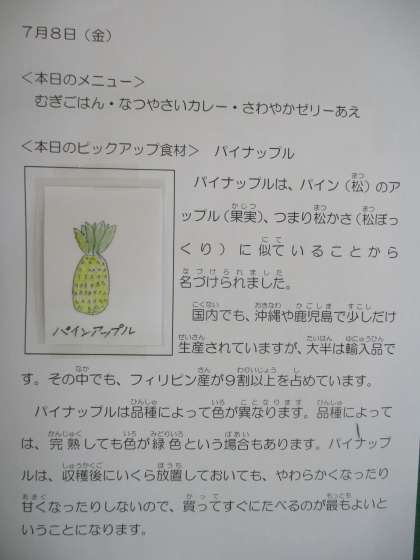 7月8日（金）
＜本日のメニュー＞
むぎごはん・なつやさいカレー・さわやかゼリーあえ
＜本日のピックアップ食材＞　パイナップル
パインアップル
パイナップルは、パイン（松）のア
ップル（果実）、つまり松かさ（松ぼっ
くり）に似ていることから
名づけられました。
国内でも、沖縄や鹿児島で少しだけ
生産されていますが、大半は輸入品で
す。その中でも、フィリピン産が９割以上を占めています。
パイナップルは品種によって色が異なります。品種によって
は、完熟しても色が緑色という場合もあります。パイナップ
ルは、収穫後にいくら放置しておいても、やわらかくなったり
甘くなったりしないので、買ってすぐにたべるのが最もよいと
いうことになります。